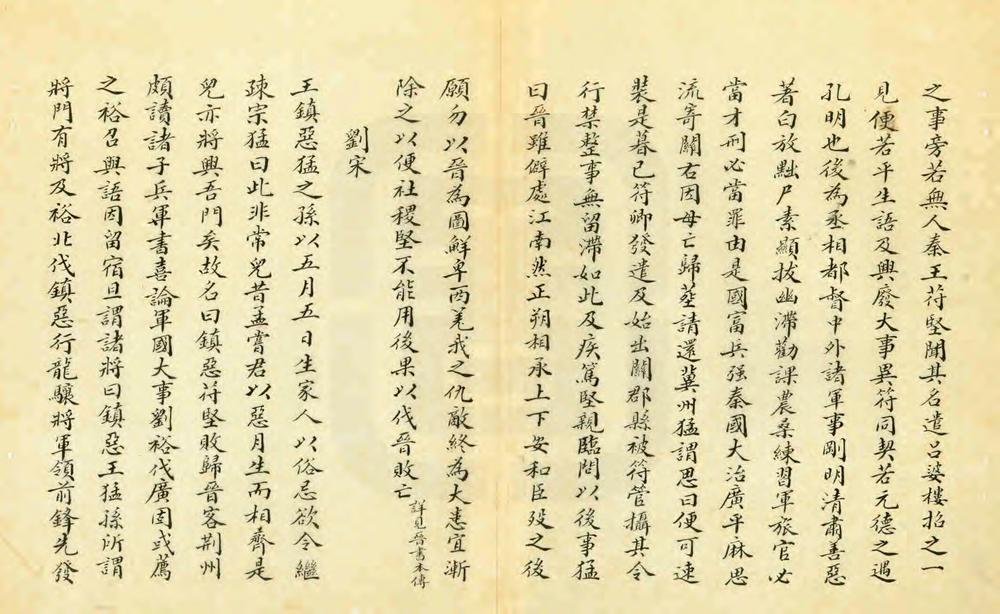 之事旁若無人秦王苻堅聞其名遣呂婆樓招之一
見便若平生語及興廢大事異符同契若元德之遇
孔明也後為丞相都督中外諸軍事剛明清肅善惡
著白放黜尸素顯拔幽滯勸課農桑練習軍旅官必
當才刑必當罪由是國富兵强秦國大治廣平麻思
流寄關右因母亡歸葬請還冀州猛謂思曰便可速
裝是暮已符卿發遣及始出關郡縣被符管攝其令
行禁整事無留滯如此及疾篤堅親臨問以後事猛
曰晉雖僻處江南然正朔相承上下安和臣歿之後
願勿以晉為圖鮮卑西羌我之仇敵終為大患宜漸
除之以便社稷堅不能用後果以伐晉敗亡詳見晉書本傳
劉宋
王鎮惡猛之孫以五月五日生家人以俗忌欲令繼
疎宗猛曰此非常兒昔孟嘗君以惡月生而相齊是
兒亦將興吾門矣故名曰鎮惡苻堅敗歸晉客荆州
頗讀諸子兵軍書喜論軍國大事劉裕伐廣固或薦
之裕召與語因留宿旦謂諸將曰鎮惡王猛孫所謂
將門有將及裕北伐鎮惡行龍驤將軍領前鋒先發